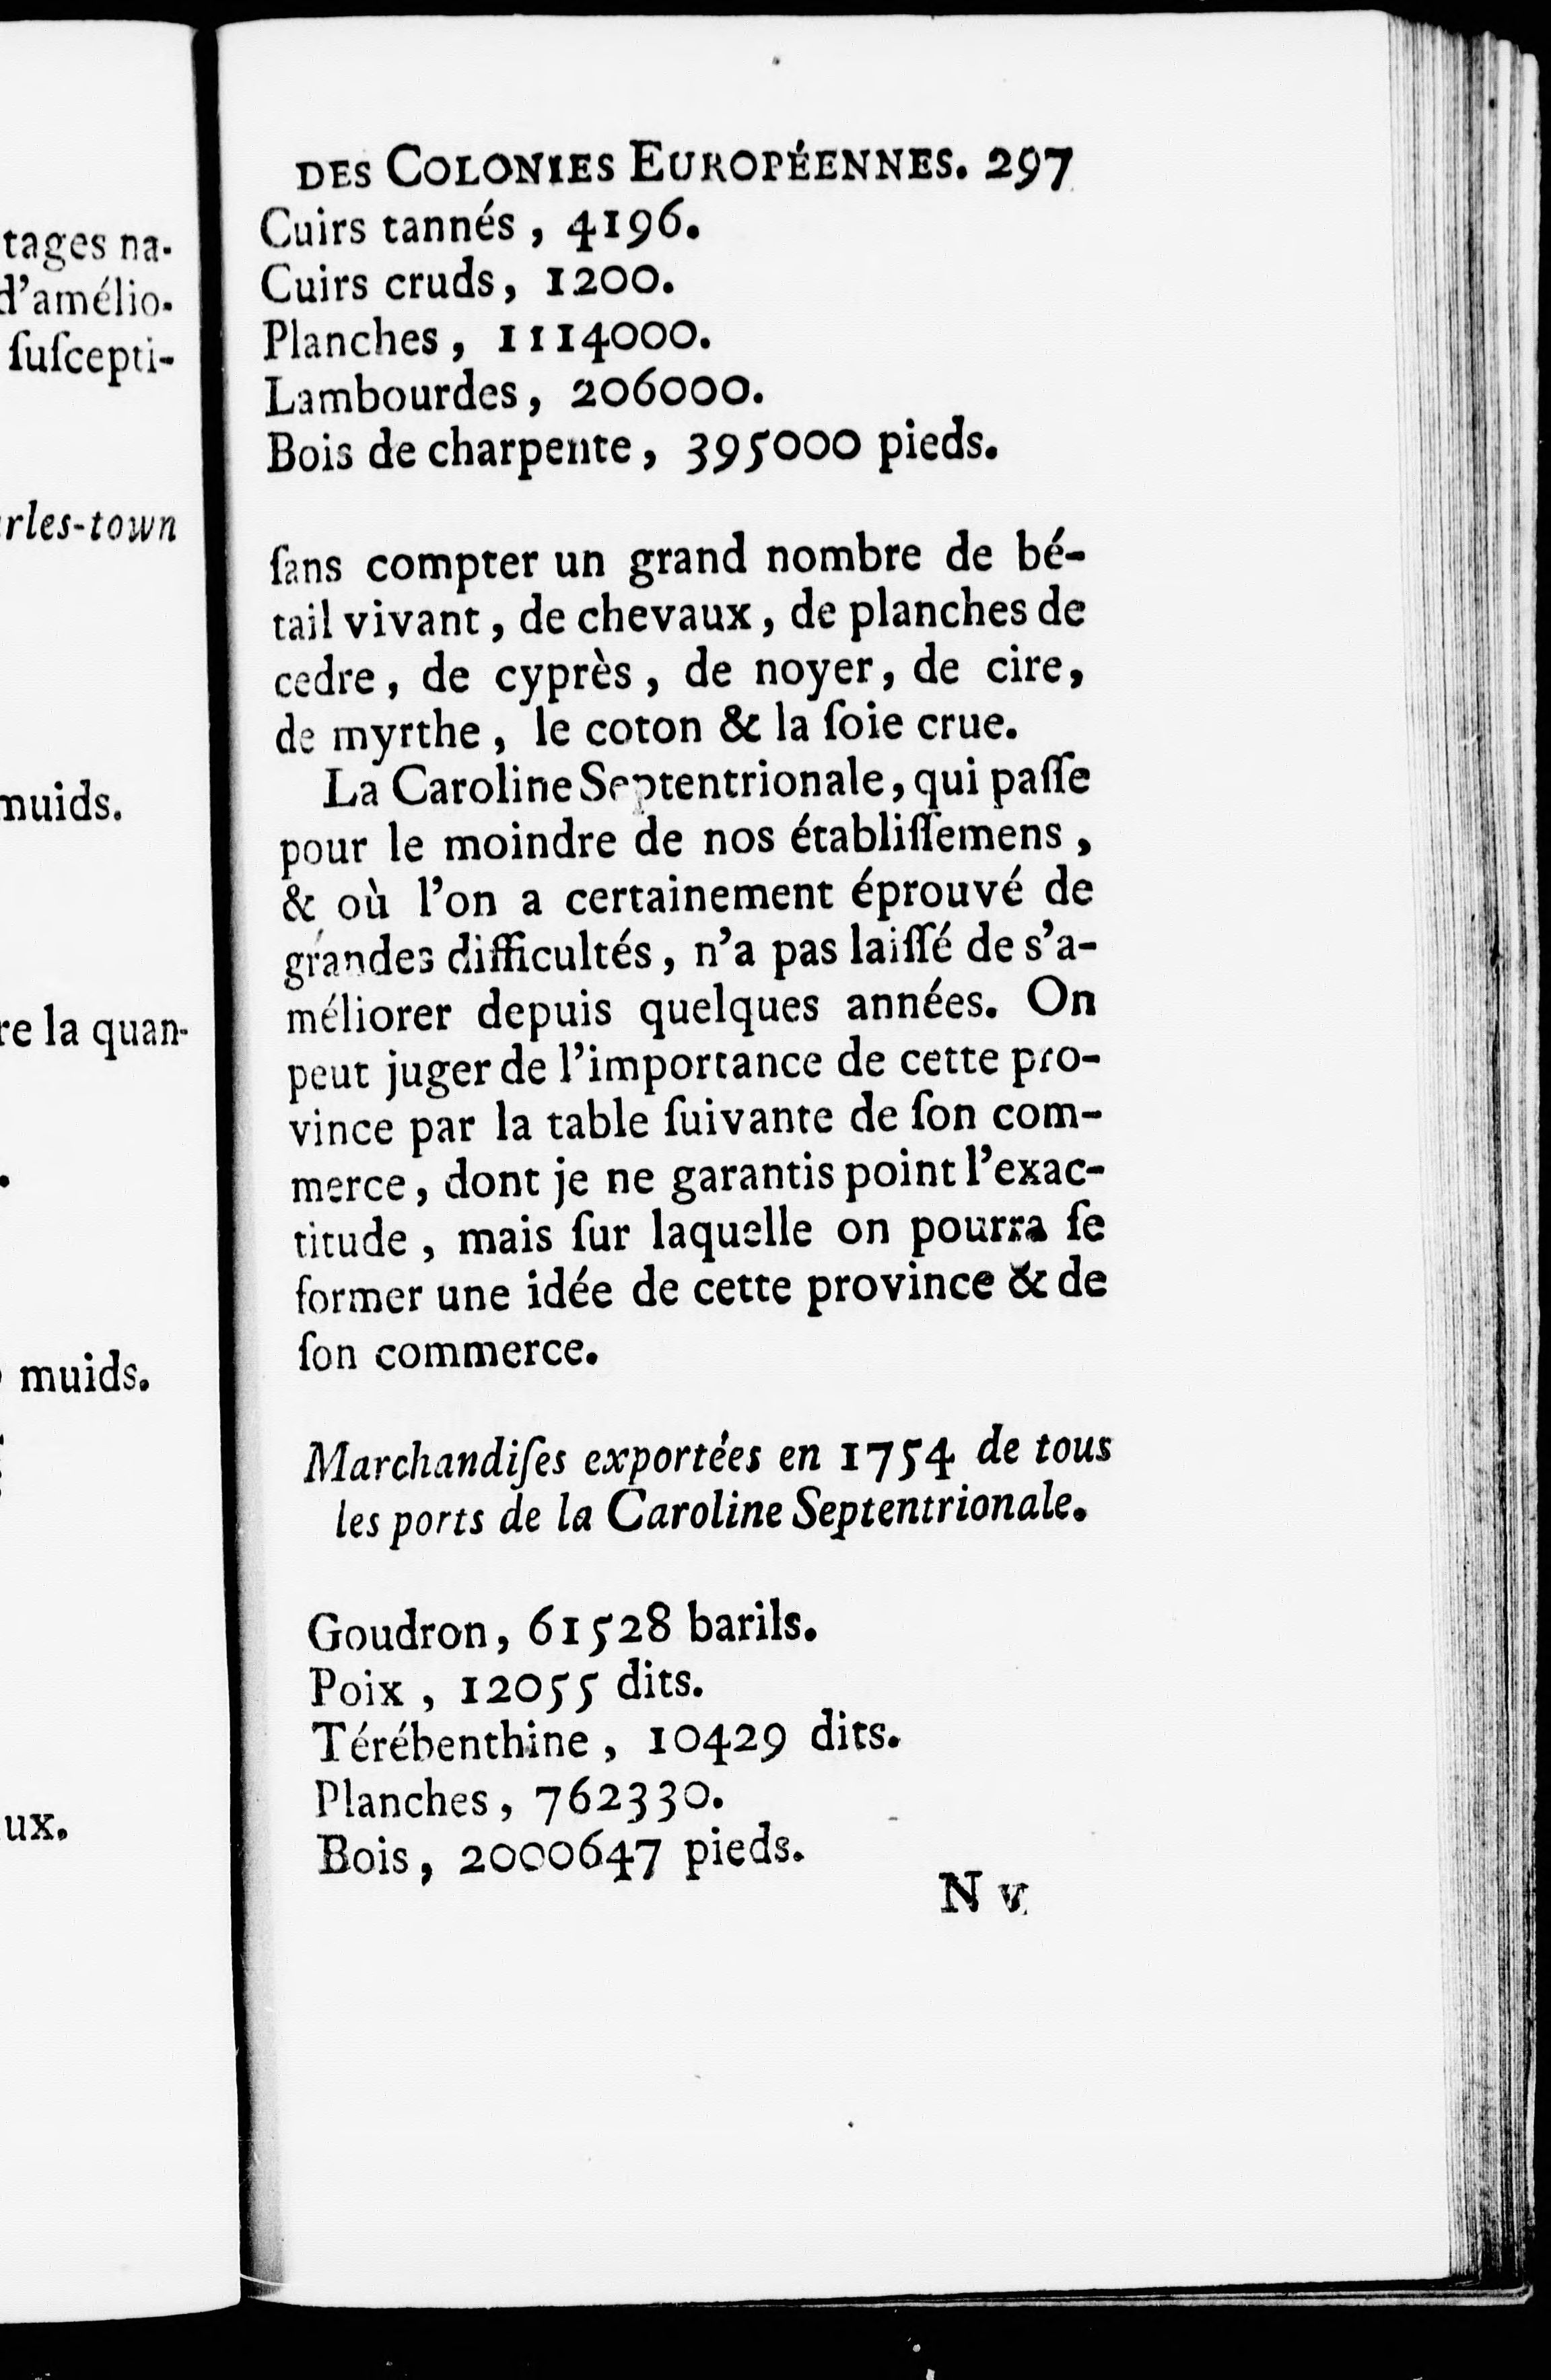 tages na-
d'amélio-
ſuſcepti-
rles-town
muids.
re la quan-
muids.
ux.
DES COLONIES EUROPÉENNES. 297
Cuirs tannés, 4196.
Cuirs cruds, 1200.
Planches, 1114000.
Lambourdes, 206000.
Bois de charpente, 395000 pieds.
ſans compter un grand nombre de bé-
tail vivant, de chevaux, de planches de
cedre, de cyprès, de noyer, de cire,
de myrthe, le coton & la ſoie crue.
La Caroline Septentrionale, qui paſſe
pour le moindre de nos établiſſemens,
& où l'on a certainement éprouvé de
grandes difficultés, n'a pas laiſſé de s'a-
méliorer depuis quelques années. On
peut juger de l'importance de cette pro-
vince par la table ſuivante de ſon com-
merce, dont je ne garantis point l'exac-
titude, mais ſur laquelle on pourra ſe
former une idée de cette province & de
ſon commerce.
Marchandiſes exportées en 1754 de tous
les ports de la Caroline Septentrionale.
Goudron, 61528 barils.
Poix, 12055 dits.
Térébenthine, 10429 dits.
Planches, 762330.
Bois, 2000647 pieds.
N v